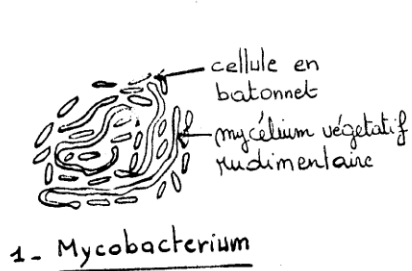 cellule en
batonnet
mycélium végétatif
rudimentaire
1- Mycobacterium